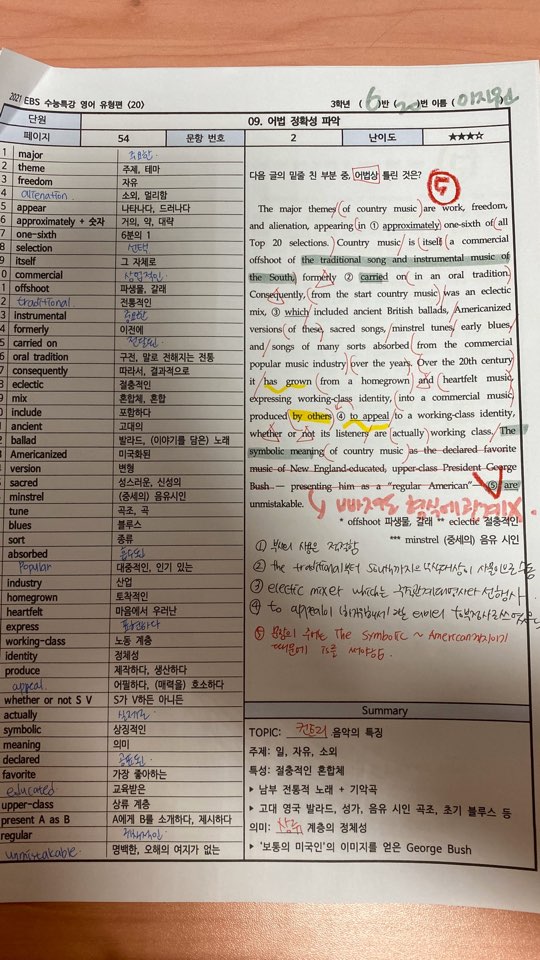 2021 EBS 수능특강 영어 유형편 <20>
3학년 ( 6 )반 ( 20 )번 이름 ( 이지원 )
단원 09. 어법 정확성 파악
페이지 54 문항 번호 2 난이도 ★★★☆
1 major 중요한
2 theme 주제, 테마
3 freedom 자유
4 alienation 소외, 멀리함
5 appear 나타나다, 드러나다
6 approximately + 숫자 거의, 약, 대략
7 one-sixth 6분의 1
8 selection 선택
9 itself 그 자체로
0 commercial 상업적인
1 offshoot 파생물, 갈래
2 traditional 전통적인
3 instrumental 중요한
4 formerly 이전에
5 carried on 전달된
6 oral tradition 구전, 말로 전해지는 전통
7 consequently 따라서, 결과적으로
8 eclectic 절충적인
9 mix 혼합체, 혼합
0 include 포함하다
1 ancient 고대의
2 ballad 발라드, (이야기를 담은) 노래
3 Americanized 미국화된
4 version 변형
5 sacred 성스러운, 신성의
minstrel (중세의) 음유시인
tune 곡조, 곡
blues 블루스
sort 종류
absorbed 흡수된
Popular 대중적인, 인기 있는
industry 산업
homegrown 토착적인
heartfelt 마음에서 우러난
express 표현하다
working-class 노동 계층
identity 정체성
produce 제작하다, 생산하다
appeal 어필하다, (매력을) 호소하다
whether or not S V S가 V하든 아니든
actually 실제로
symbolic 상징적인
meaning 의미
declared 공표된
favorite 가장 좋아하는
educated 교육받은
upper-class 상류 계층
present A as B A에게 B를 소개하다, 제시하다
regular
unmistakable 명백한, 오해의 여지가 없는
다음 글의 밑줄 친 부분 중, 어법상 틀린 것은?
⑤
The major themes of country music are work, freedom,
and alienation, appearing in ① approximately one-sixth of all
Top 20 selections. Country music is itself a commercial
offshoot of the traditional song and instrumental music of
the South, formerly ② carried on in an oral tradition.
Consequently, from the start country music was an eclectic
mix, ③ which included ancient British ballads, Americanized
versions of these, sacred songs, minstrel tunes, early blues,
and songs of many sorts absorbed from the commercial
popular music industry over the years. Over the 20th century
it has grown from a homegrown and heartfelt music,
expressing working-class identity, into a commercial music,
produced by others ④ to appeal to a working-class identity,
whether or not its listeners are actually working class. The
symbolic meaning of country music as the declared favorite
music of New England-educated, upper-class President George
Bush — presenting him as a “regular American”— ⑤ are
unmistakable.
↳ 빠져도 형식에 관계X.
* offshoot 파생물, 갈래 ** eclectic 절충적인
*** minstrel (중세의) 음유 시인
① 부사의 쓰임은 적절함
③ eclectic mix which는 주격관계대명사라 선행사
TOPIC: 컨트리 음악의 특징
Summary
주제: 일, 자유, 소외
특성: 절충적인 혼합체
▸ 남부 전통적 노래 + 기악곡
▸ 고대 영국 발라드, 성가, 음유 시인 곡조, 초기 블루스 등
의미: 상류 계층의 정체성
▸ ‘보통의 미국인’의 이미지를 얻은 George Bush